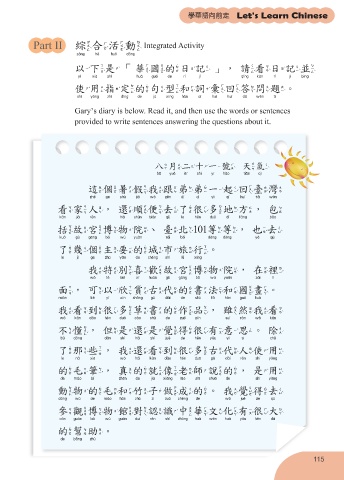 學華語向前走 Let's Learn Chinese
Part II 綜合活動 Integrated Activity
以下是「華國的日記」，請看日記並
使用指定的句型和詞彙回答問題。
Gary's diary is below. Read it, and then use the words or sentences
provided to write sentences answering the questions about it.
八月二十一號 天氣
這個暑假我跟弟弟一起回臺灣
看家人，還順便去了很多地方，包
括故宮博物院、臺北101等等，也去
了幾個主要的城市旅行。
我特別喜歡故宮博物院，在裡
面，可以欣賞古代的書法和國畫。
我看到很多草書的作品，雖然我看
不懂，但是還是覺得很有意思。除
了那些，我還看到很多古代人使用
的毛筆，真的就像老師說的，是用
動物的毛和竹子做成的。我覺得去
參觀博物館對認識中華文化有很大
的幫助。
115